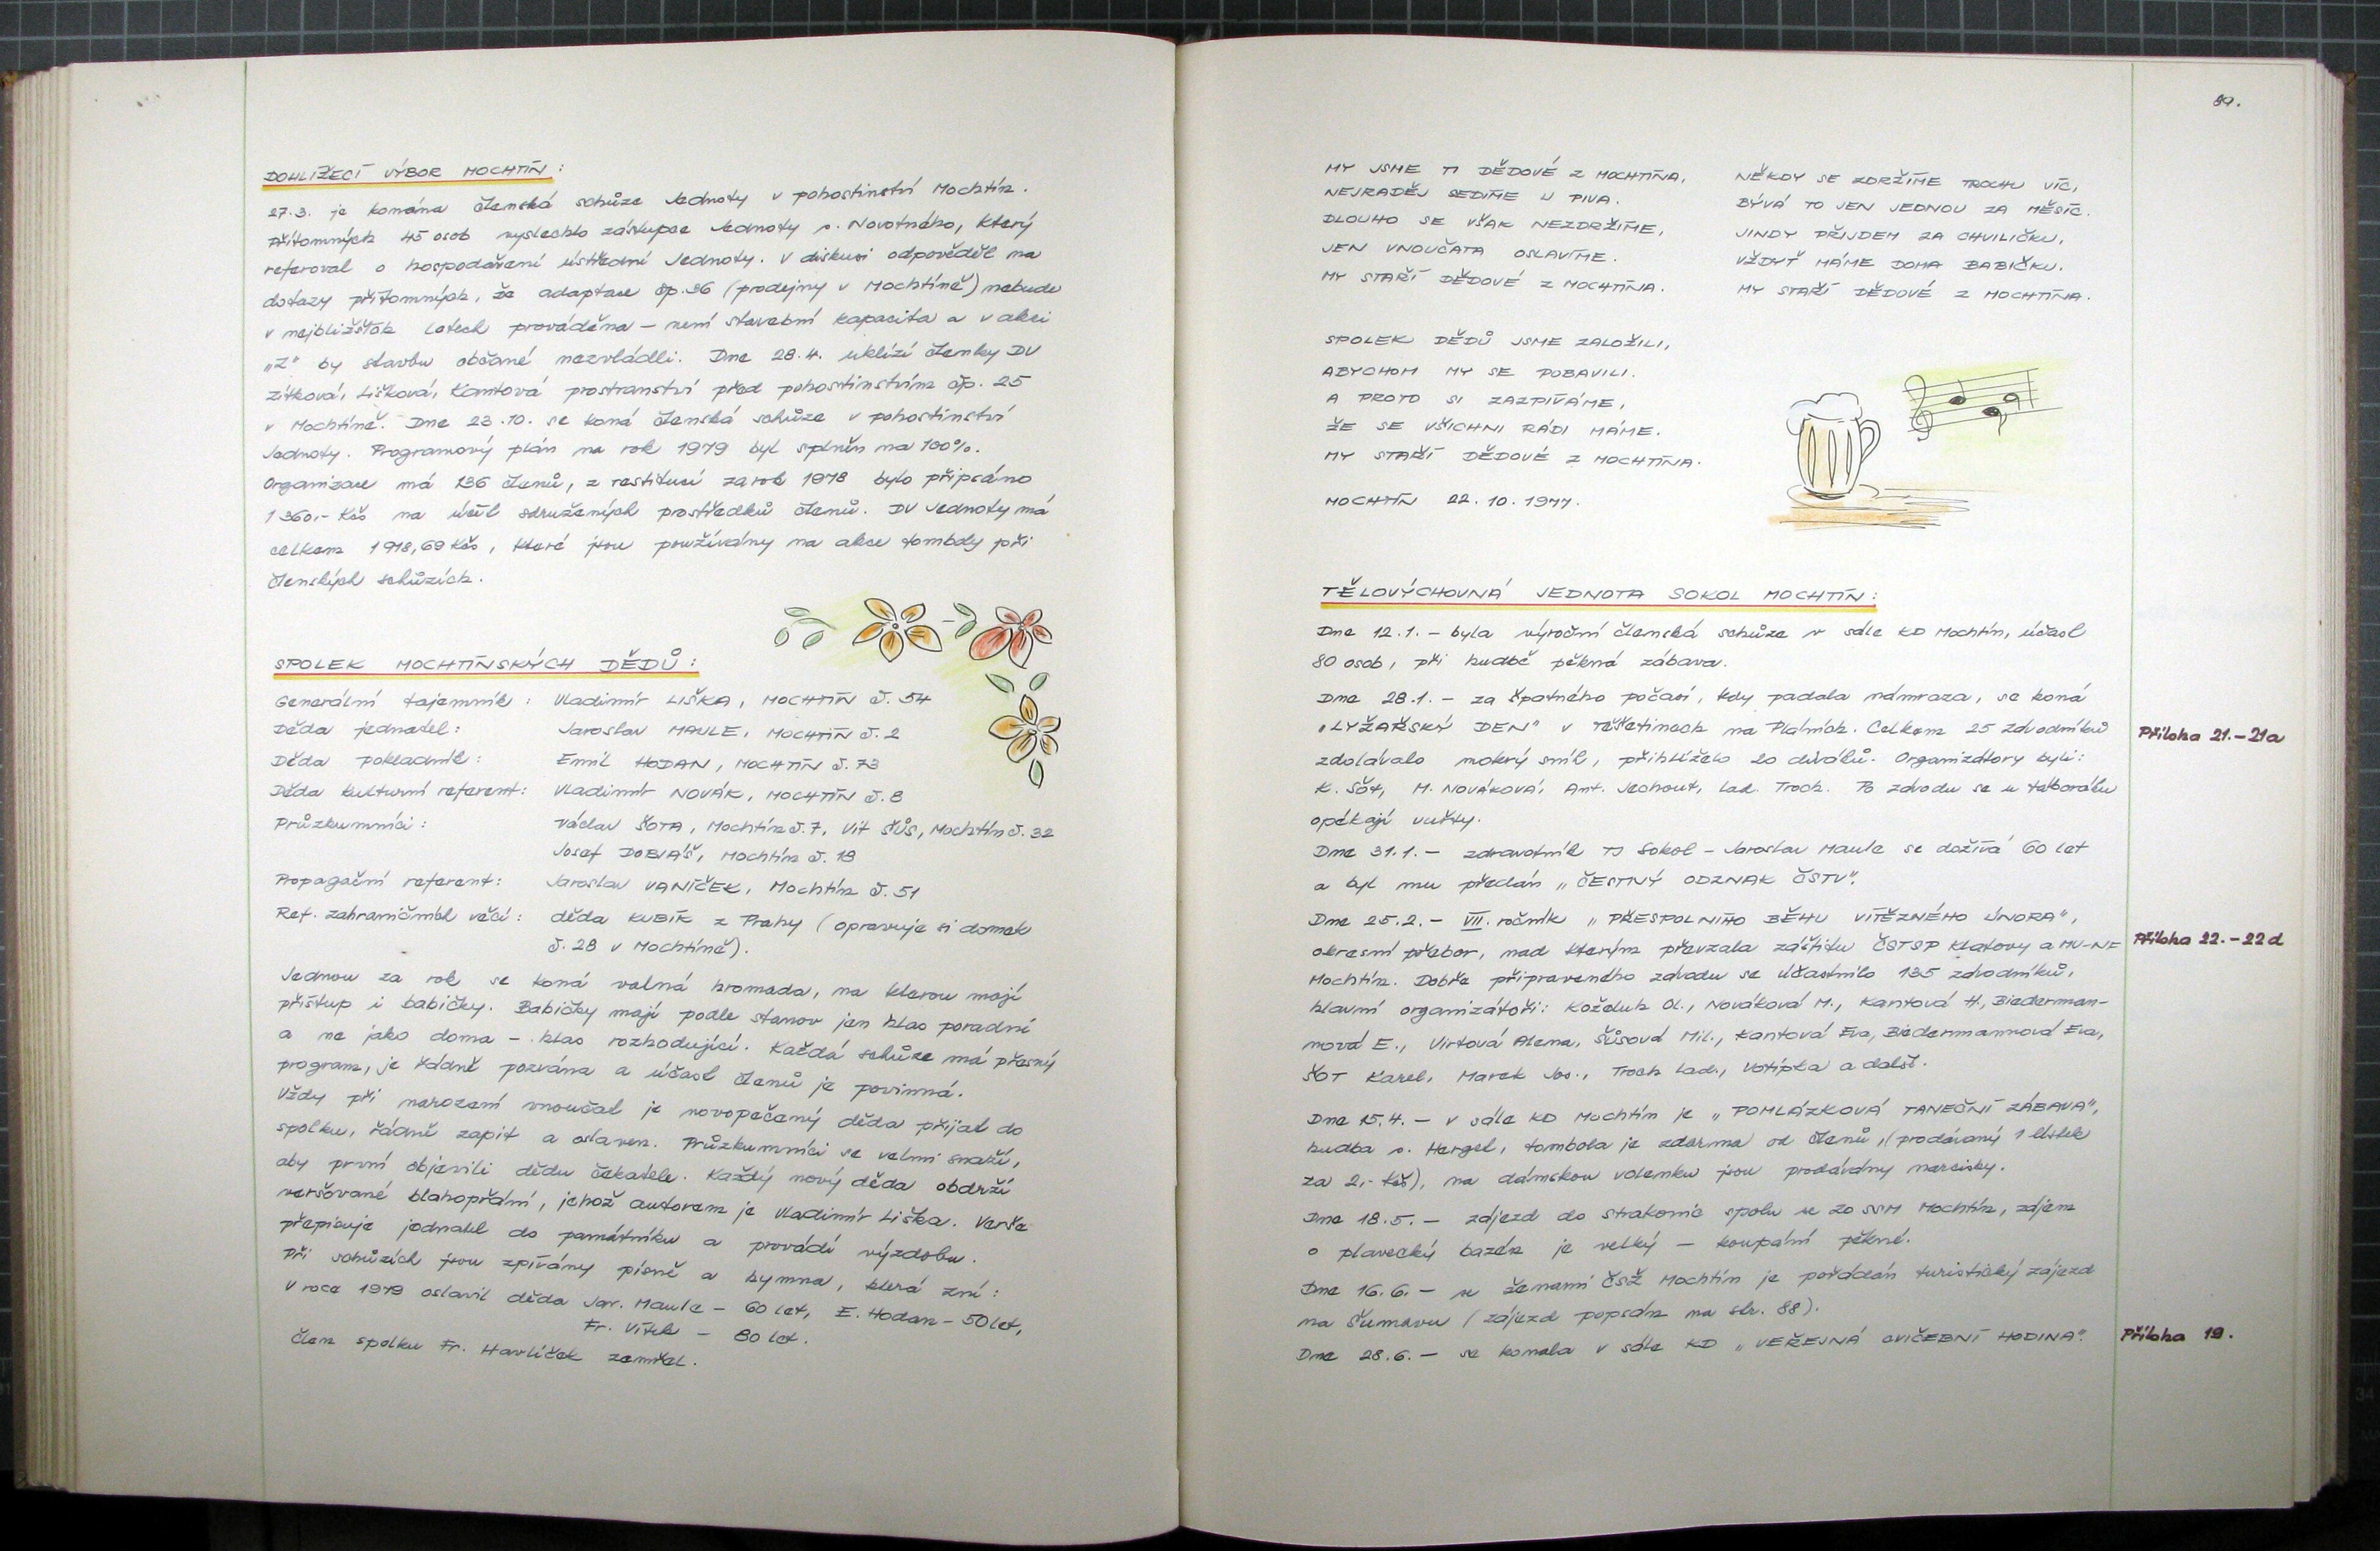 DOHLÍŽECÍ VÝBOR MOCHTÍN:
27.3. je konána členská schůze Jednoty v pohostinství Mochtín.
Přítomných 45 osob vyslechlo zástupce Jednoty s. Novotného, který
referoval o hospodaření ústřední Jednoty. V diskusi odpověděl na
dotazy přítomných, že adaptace čp. 36 (prodejny v Mochtíně) nebude
v nejbližších letech prováděna – není stavební kapacita a v akci
„Z" by stavbu občané nezvládli. Dne 28.4. uklízí členky DV
Zítková, Lišková, Kantová prostranství před pohostinstvím čp. 25
v Mochtíně. Dne 23.10. se koná členská schůze v pohostinství
Jednoty. Programový plán na rok 1979 byl splněn na 100%.
Organizace má 136 členů, z restitucí za rok 1978 bylo připsáno
1 360.- Kčs na účet sdružených prostředků členů. DV Jednoty má
celkem 1 918,69 Kčs, které jsou používány na akce tomboly při
členských schůzích.
SPOLEK MOCHTÍNSKÝCH DĚDŮ:
Generální tajemník: Vladimír LIŠKA, MOCHTÍN č. 54
Děda jednatel: Jaroslav MAULE, MOCHTÍN č. 2
Děda pokladník: Emil HODAN, MOCHTÍN č. 73
Děda kulturní referent: Vladimír NOVÁK, MOCHTÍN č. 8
Průzkumníci: Václav ŠOTA, Mochtín č. 7, Vít ŠŮS, Mochtín č. 32
Josef DOBIÁŠ, Mochtín č. 19
Propagační referent: Jaroslav VANÍČEK, Mochtín č. 51
Ref. zahraničních věcí: děda KUBÍK z Prahy (opravuje si domek
č. 28 v Mochtíně).
Jednou za rok se koná valná hromada, na kterou mají
přístup i babičky. Babičky mají podle stanov jen hlas poradní
a ne jako doma – hlas rozhodující. Každá schůze má přesný
program, je řádně pozvána a účast členů je povinná.
Vždy při narození vnoučat je novopečený děda přijat do
spolku, řádně zapit a oslaven. Průzkumníci se velmi snaží,
aby první objevili dědu čekatele. Každý nový děda obdrží
veršované blahopřání, jehož autorem je Vladimír Liška. Verše
přepisuje jednatel do památníku a provádí výzdobu.
Při schůzích jsou zpívány písně a hymna, která zní:
V roce 1979 oslavil děda Jar. Maule – 60 let, E. Hodan – 50 let,
Fr. Vítek – 80 let.
Člen spolku Fr. Havlíček zemřel.
89.
MY JSME TI DĚDOVÉ Z MOCHTÍNA,
NEJRADĚJ SEDÍME U PIVA.
DLOUHO SE VŠAK NEZDRŽÍME,
JEN VNOUČATA OSLAVÍME.
MY STAŘÍ DĚDOVÉ Z MOCHTÍNA.
NĚKDY SE ZDRŽÍME TROCHU VÍC,
BÝVÁ TO JEN JEDNOU ZA MĚSÍC.
JINDY PŘIJDEM ZA CHVILIČKU,
VŽDYŤ MÁME DOMA BABIČKU.
MY STAŘÍ DĚDOVÉ Z MOCHTÍNA.
SPOLEK DĚDŮ JSME ZALOŽILI,
ABYCHOM MY SE POBAVILI.
A PROTO SI ZAZPÍVÁME,
ŽE SE VŠICHNI RÁDI MÁME.
MY STAŘÍ DĚDOVÉ Z MOCHTÍNA.
MOCHTÍN 22.10.1977.
TĚLOVÝCHOVNÁ JEDNOTA SOKOL MOCHTÍN:
Dne 12.1. – byla výroční členská schůze v sále KD Mochtín, účast
80 osob, při hudbě pěkná zábava.
Dne 28.1. – za špatného počasí, kdy padala námraza, se koná
„LYŽAŘSKÝ DEN" v Těšetinech na Pláních. Celkem 25 závodníků
Příloha 21.–21a
zdolávalo mokrý sníh, přihlíželo 20 diváků. Organizátory byli:
K. Šot, M. NOVÁKOVÁ, Ant. Jechout, Lad. Troch. Po závodu se u táboráku
opékají vuřty.
Dne 31.1. – zdravotník TJ Sokol – Jaroslav Maule se dožívá 60 let
a byl mu předán „ČESTNÝ ODZNAK ČSTV".
Dne 25.2. – VII. ročník „PŘESPOLNÍHO BĚHU VÍTĚZNÉHO ÚNORA",
okresní přebor, nad kterým převzala záštitu ČSTSP Klatovy a MV-NF
Příloha 22.–22d
Mochtín. Dobře připraveného závodu se účastnilo 135 závodníků,
hlavní organizátoři: Koželuh Ol., Nováková M., Kantová H., Biederman-
nová E., Virtová Alena, Šůsová Mil., Kantová Eva, Biedermannová Eva,
ŠOT Karel, Marek Jos., Troch Lad., Votípka a další.
Dne 15.4. – v sále KD Mochtín je „POMLÁZKOVÁ TANEČNÍ ZÁBAVA",
hudba s. Hergel, tombola je zdarma od členů, (prodávaný 1 lístek
za 2,- Kčs), na dámskou volenku jsou prodávány narcisky.
Dne 18.5. – zájezd do Strakonic spolu se ZO SSM Mochtín, zájem
o plavecký bazén je velký – koupání pěkné.
Dne 16.6. – se ženami ČSŽ Mochtín je pořádán turistický zájezd
na Šumavu (zájezd popsán na str. 88).
Dne 28.6. – se konala v sále KD „VEŘEJNÁ CVIČEBNÍ HODINA".
Příloha 19.